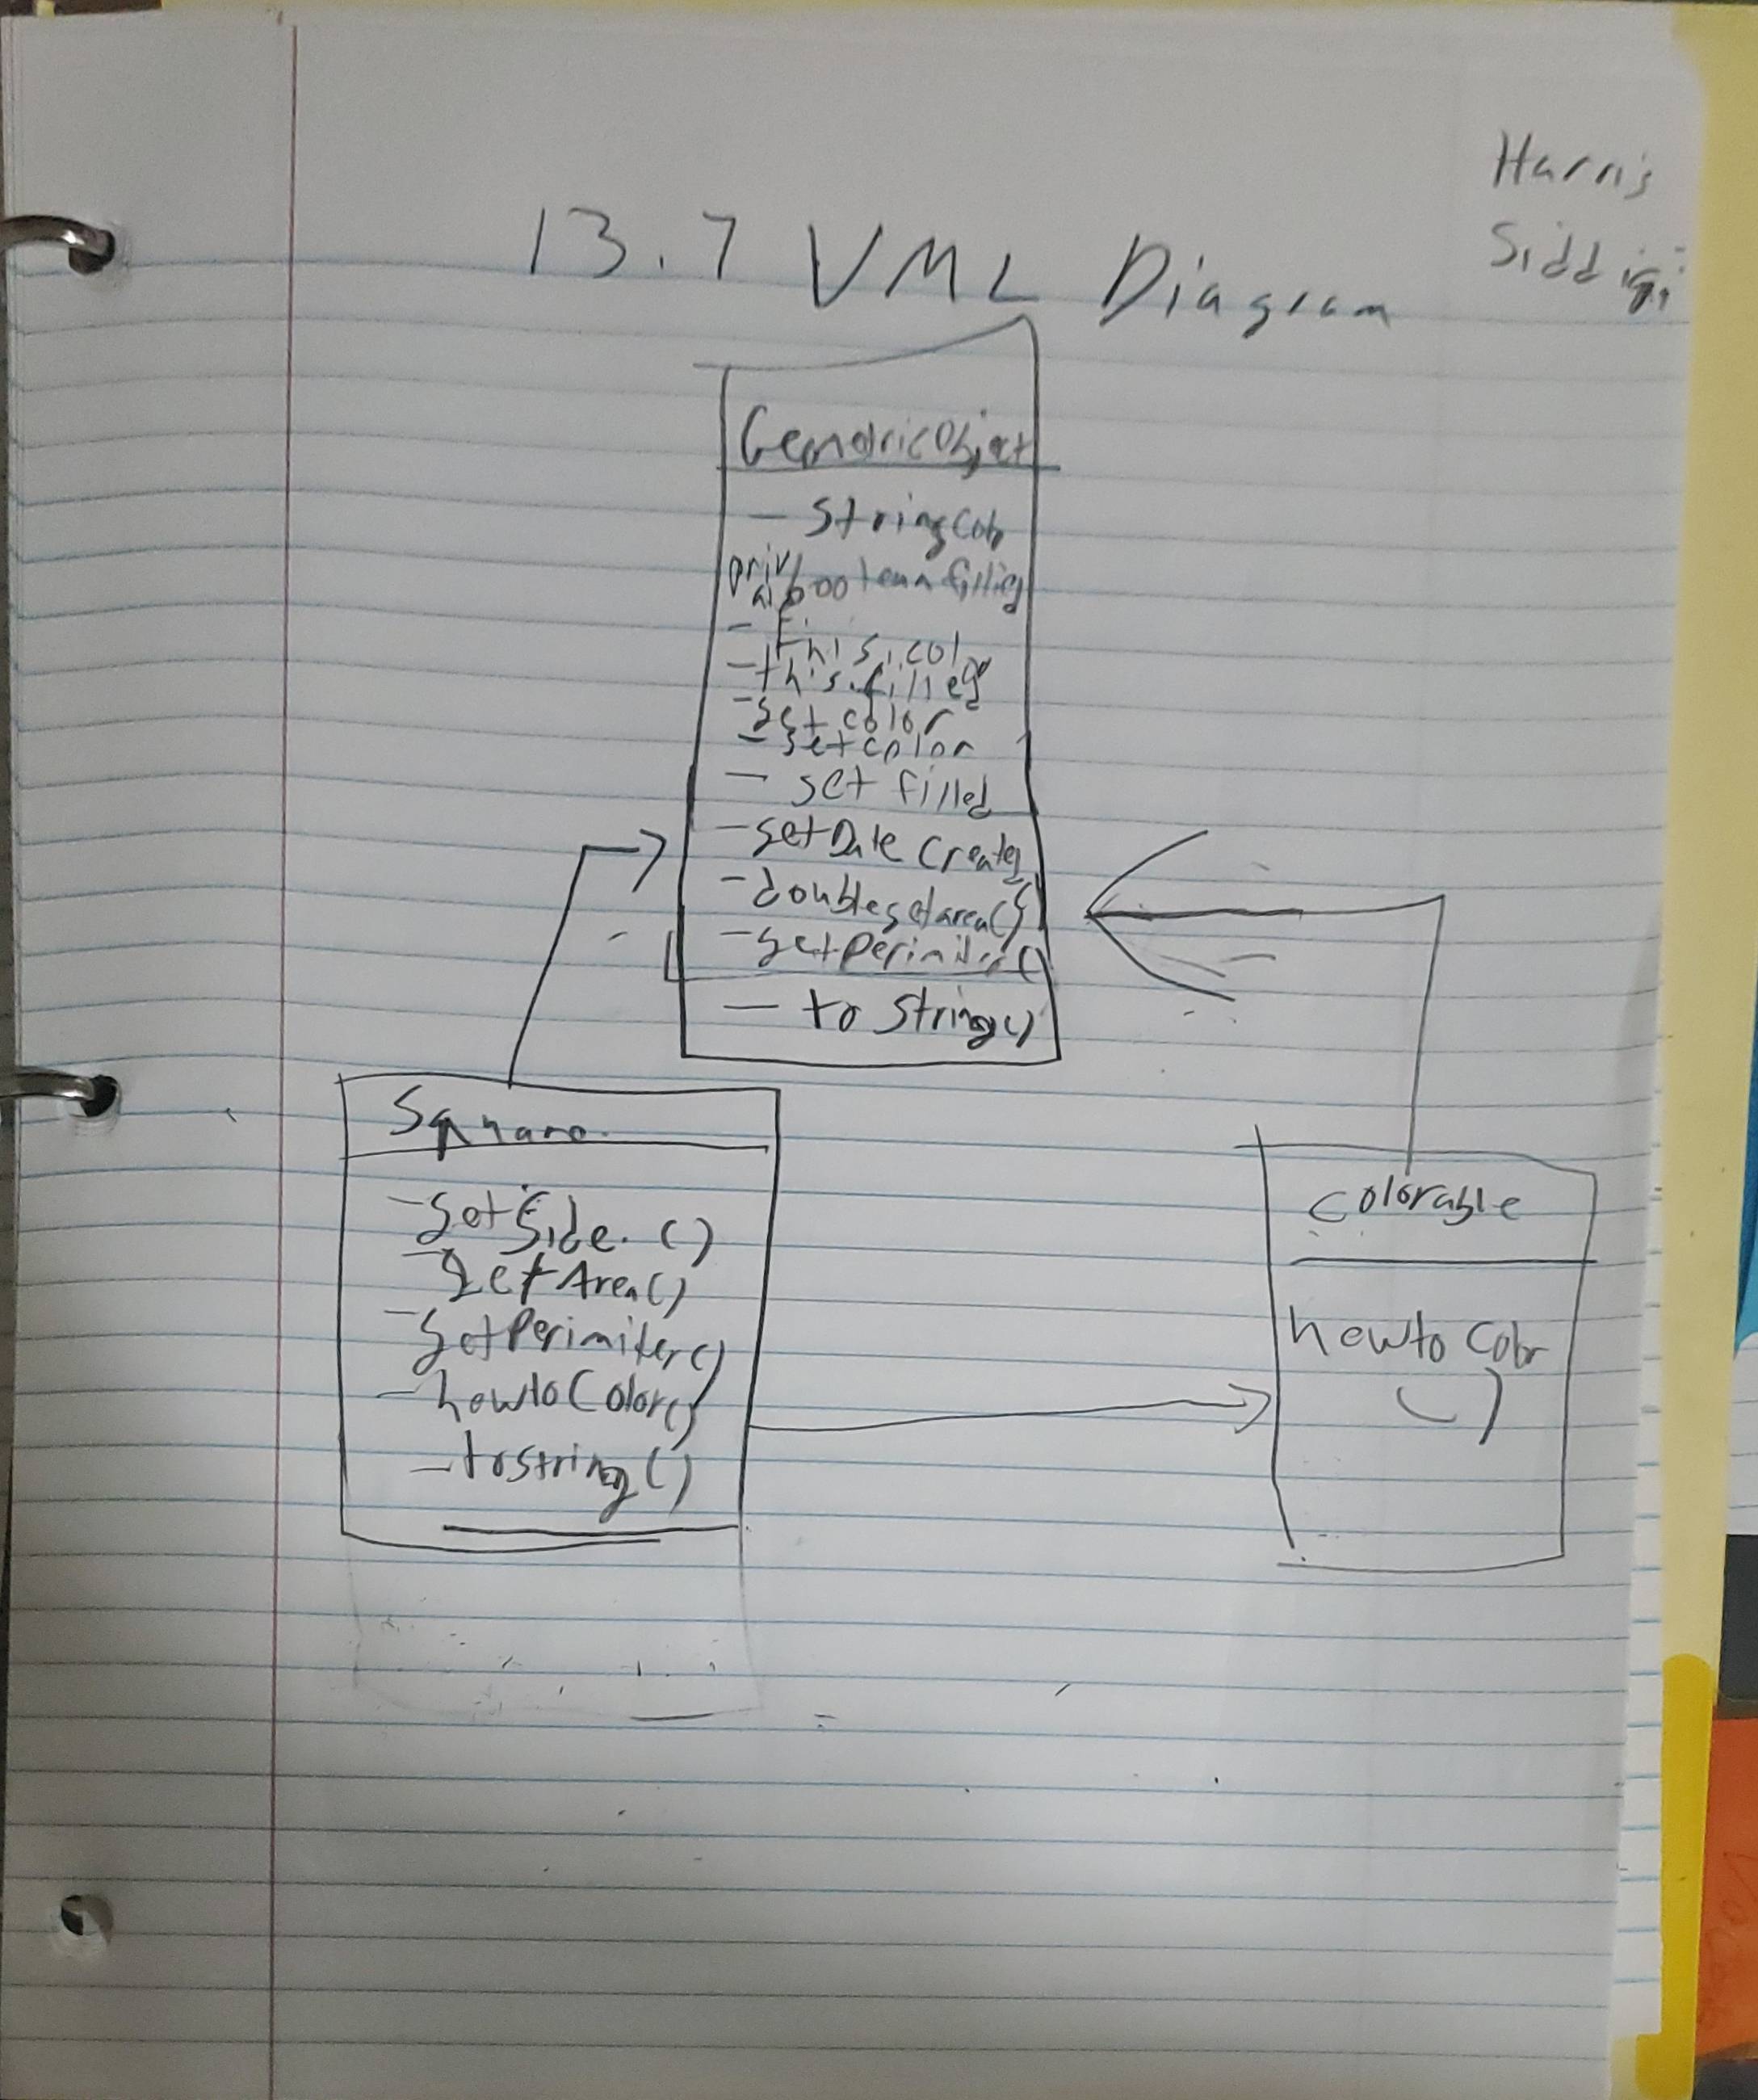 Harris
Siddiqi
13.7 UML Diagram
GemotricObject
- String Color
private boolean filled
- this.col
- this.filled
- get color
- set color
- set filled
- getDate Created
- double getarea()
- getPerimiter()
- to String()
Square
- getSide. ()
- getArea()
- getPerimiter()
- howtoColor()
- toString()
colorable
howto Color
()